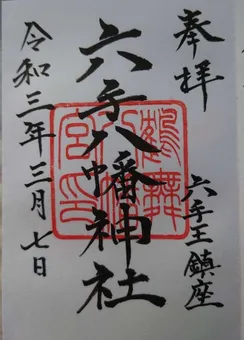 奉拝
六手王鎮座
六手八幡神社
令和三年三月七日